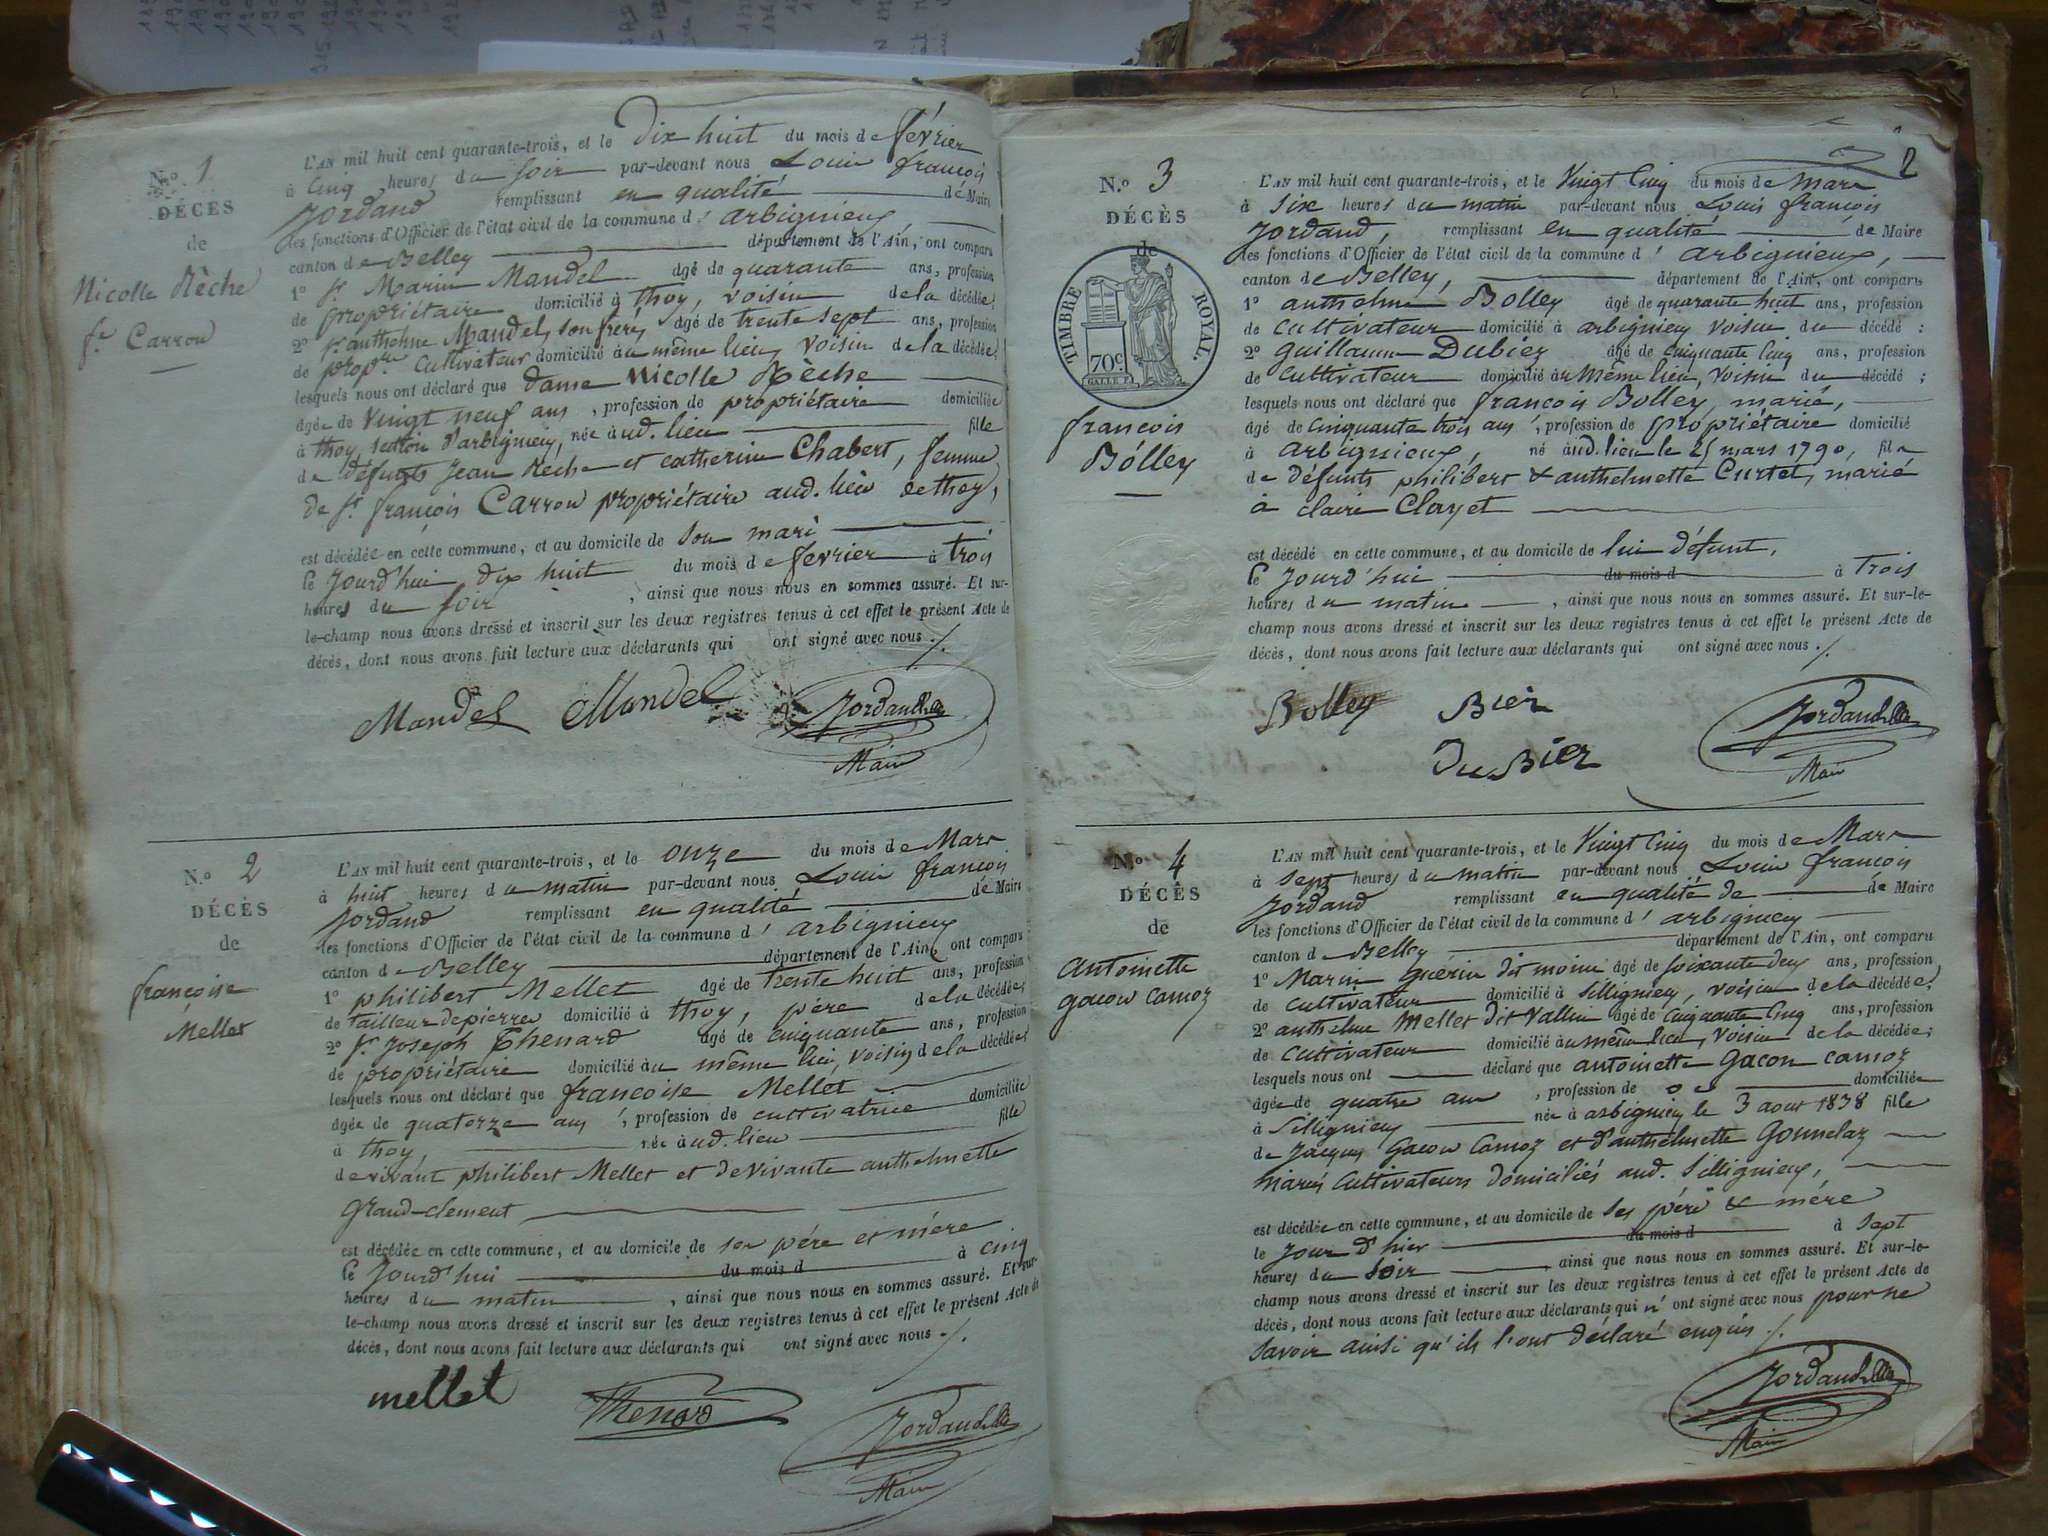 N.º 1
DÉCÈS
de
Nicolle Rèche
fe Carron
L'AN mil huit cent quarante-trois, et le Dix huit du mois de février
à Cinq heures du soir par-devant nous Louis françois
Jordand remplissant en qualité de Maire
les fonctions d'Officier de l'état civil de la commune d' arbignieu
canton de Belley département de l'Ain, ont comparu
1º Sr Marin Mandel âgé de quarante ans, profession
de propriétaire domicilié à thoy, voisin de la décédée;
2º Sr anthelme Mandel, son frère, âgé de trente sept ans, profession
de propre. cultivateur domicilié au même lieu, voisin de la décédée;
lesquels nous ont déclaré que dame Nicolle Rèche
âgée de vingt neuf ans, profession de propriétaire domiciliée
à thoy, section d'arbignieu, née aud. lieu fille
de défunts Jean Rèche et catherine Chabert, femme
de Sr françois Carron propriétaire aud. lieu de thoy,
est décédée en cette commune, et au domicile de son mari
le Jourd'hui dix huit du mois de février à trois
heures du soir, ainsi que nous nous en sommes assuré. Et sur-
le-champ nous avons dressé et inscrit sur les deux registres tenus à cet effet le présent Acte de
décès, dont nous avons fait lecture aux déclarants qui ont signé avec nous ./.
Mandel Mandel Jordand
Maire
N.º 2
DÉCÈS
de
françoise
Mellet
L'AN mil huit cent quarante-trois, et le onze du mois de Mars
à huit heures du matin par-devant nous Louis françois
Jordand remplissant en qualité de Maire
les fonctions d'Officier de l'état civil de la commune d' arbignieu
canton de Belley département de l'Ain, ont comparu
1º philibert Mellet âgé de trente huit ans, profession
de tailleur de pierre domicilié à thoy, père de la décédée;
2º Sr Joseph Thenard âgé de cinquante ans, profession
de propriétaire domicilié au même lieu, voisin de la décédée;
lesquels nous ont déclaré que françoise Mellet
âgée de quatorze ans, profession de cultivatrice domiciliée
à thoy, née aud. lieu fille
de vivant philibert Mellet et de vivante anthelmette
Grand-clement
est décédée en cette commune, et au domicile de ses père et mère
le Jourd'hui du mois d à cinq
heures du matin, ainsi que nous nous en sommes assuré. Et sur-
le-champ nous avons dressé et inscrit sur les deux registres tenus à cet effet le présent Acte de
décès, dont nous avons fait lecture aux déclarants qui ont signé avec nous ./.
mellet Thenard Jordand
Maire
2
N.º 3
DÉCÈS
de
TIMBRE ROYAL
70c.
françois
Bolley
L'AN mil huit cent quarante-trois, et le Vingt Cinq du mois de Mars
à six heures du matin par-devant nous Louis françois
Jordand, remplissant en qualité de Maire
les fonctions d'Officier de l'état civil de la commune d' arbignieu,
canton de Belley, département de l'Ain, ont comparu
1º anthelme Bolley âgé de quarante huit ans, profession
de cultivateur domicilié à arbignieu voisin du décédé;
2º guillaume Dubiez âgé de cinquante cinq ans, profession
de cultivateur domicilié au même lieu, voisin du décédé;
lesquels nous ont déclaré que françois Bolley, marié,
âgé de cinquante trois ans, profession de propriétaire domicilié
à arbignieu, né aud. lieu le 25 mars 1790, fils
de défunts philibert & anthelmette Curtet, marié
à claire Clayet
est décédé en cette commune, et au domicile de lui défunt,
le Jourd'hui du mois d à trois
heures du matin, ainsi que nous nous en sommes assuré. Et sur-le-
champ nous avons dressé et inscrit sur les deux registres tenus à cet effet le présent Acte de
décès, dont nous avons fait lecture aux déclarants qui ont signé avec nous ./.
Bolley Bier Jordand
DuBiez Maire
N.º 4
DÉCÈS
de
Antoinette
gacon camoz
L'AN mil huit cent quarante-trois, et le Vingt Cinq du mois de Mars
à sept heures du matin par-devant nous Louis françois
Jordand remplissant en qualité de de Maire
les fonctions d'Officier de l'état civil de la commune d' arbignieu
canton de Belley département de l'Ain, ont comparu
1º Marin guérin dit moine âgé de soixante deux ans, profession
de cultivateur domicilié à Sillignieu, voisin de la décédée;
2º anthelme Mellet dit Vallin âgé de cinquante cinq ans, profession
de cultivateur domicilié au même lieu, voisin de la décédée;
lesquels nous ont déclaré que antoinette gacon camoz
âgée de quatre ans, profession de domiciliée
à Sillignieu née à arbignieu le 3 aout 1838 fille
de Jacques gacon camoz et d'anthelmette Gonnelaz
mariés cultivateurs domiciliés aud. Sillignieu,
est décédée en cette commune, et au domicile de ses père & mère
le Jour d'hier du mois d à sept
heures du soir, ainsi que nous nous en sommes assuré. Et sur-le-
champ nous avons dressé et inscrit sur les deux registres tenus à cet effet le présent Acte de
décès, dont nous avons fait lecture aux déclarants qui n'ont signé avec nous pour ne
savoir ainsi qu'ils l'ont déclaré enquis ./.
Jordand
Maire